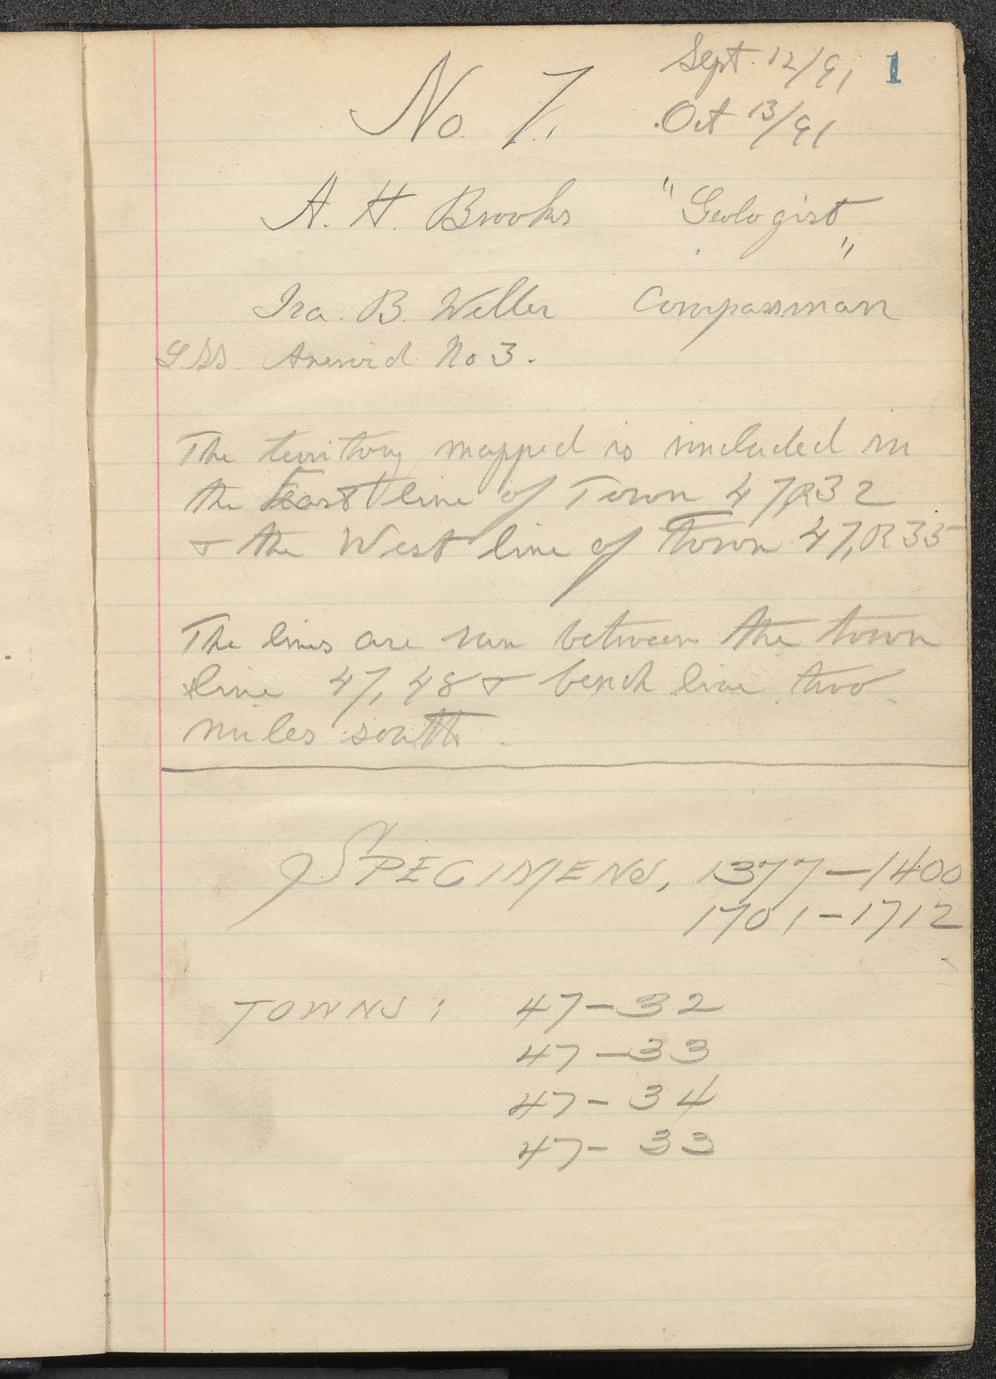 Sept. 12/91 1
No 7. Oct 13/91
A. H. Brooks "Geologist"
Ira. B. Weller Compassman
Aneroid No 3.
The territory mapped is included in
the East line of Town 47,R32
& the West line of Town 47,R35
The lines are run between the town
line 47, 48 & bench line two
miles south.
SPECIMENS, 1377-1400
1701-1712
TOWNS: 47-32
47-33
47-34
47-33